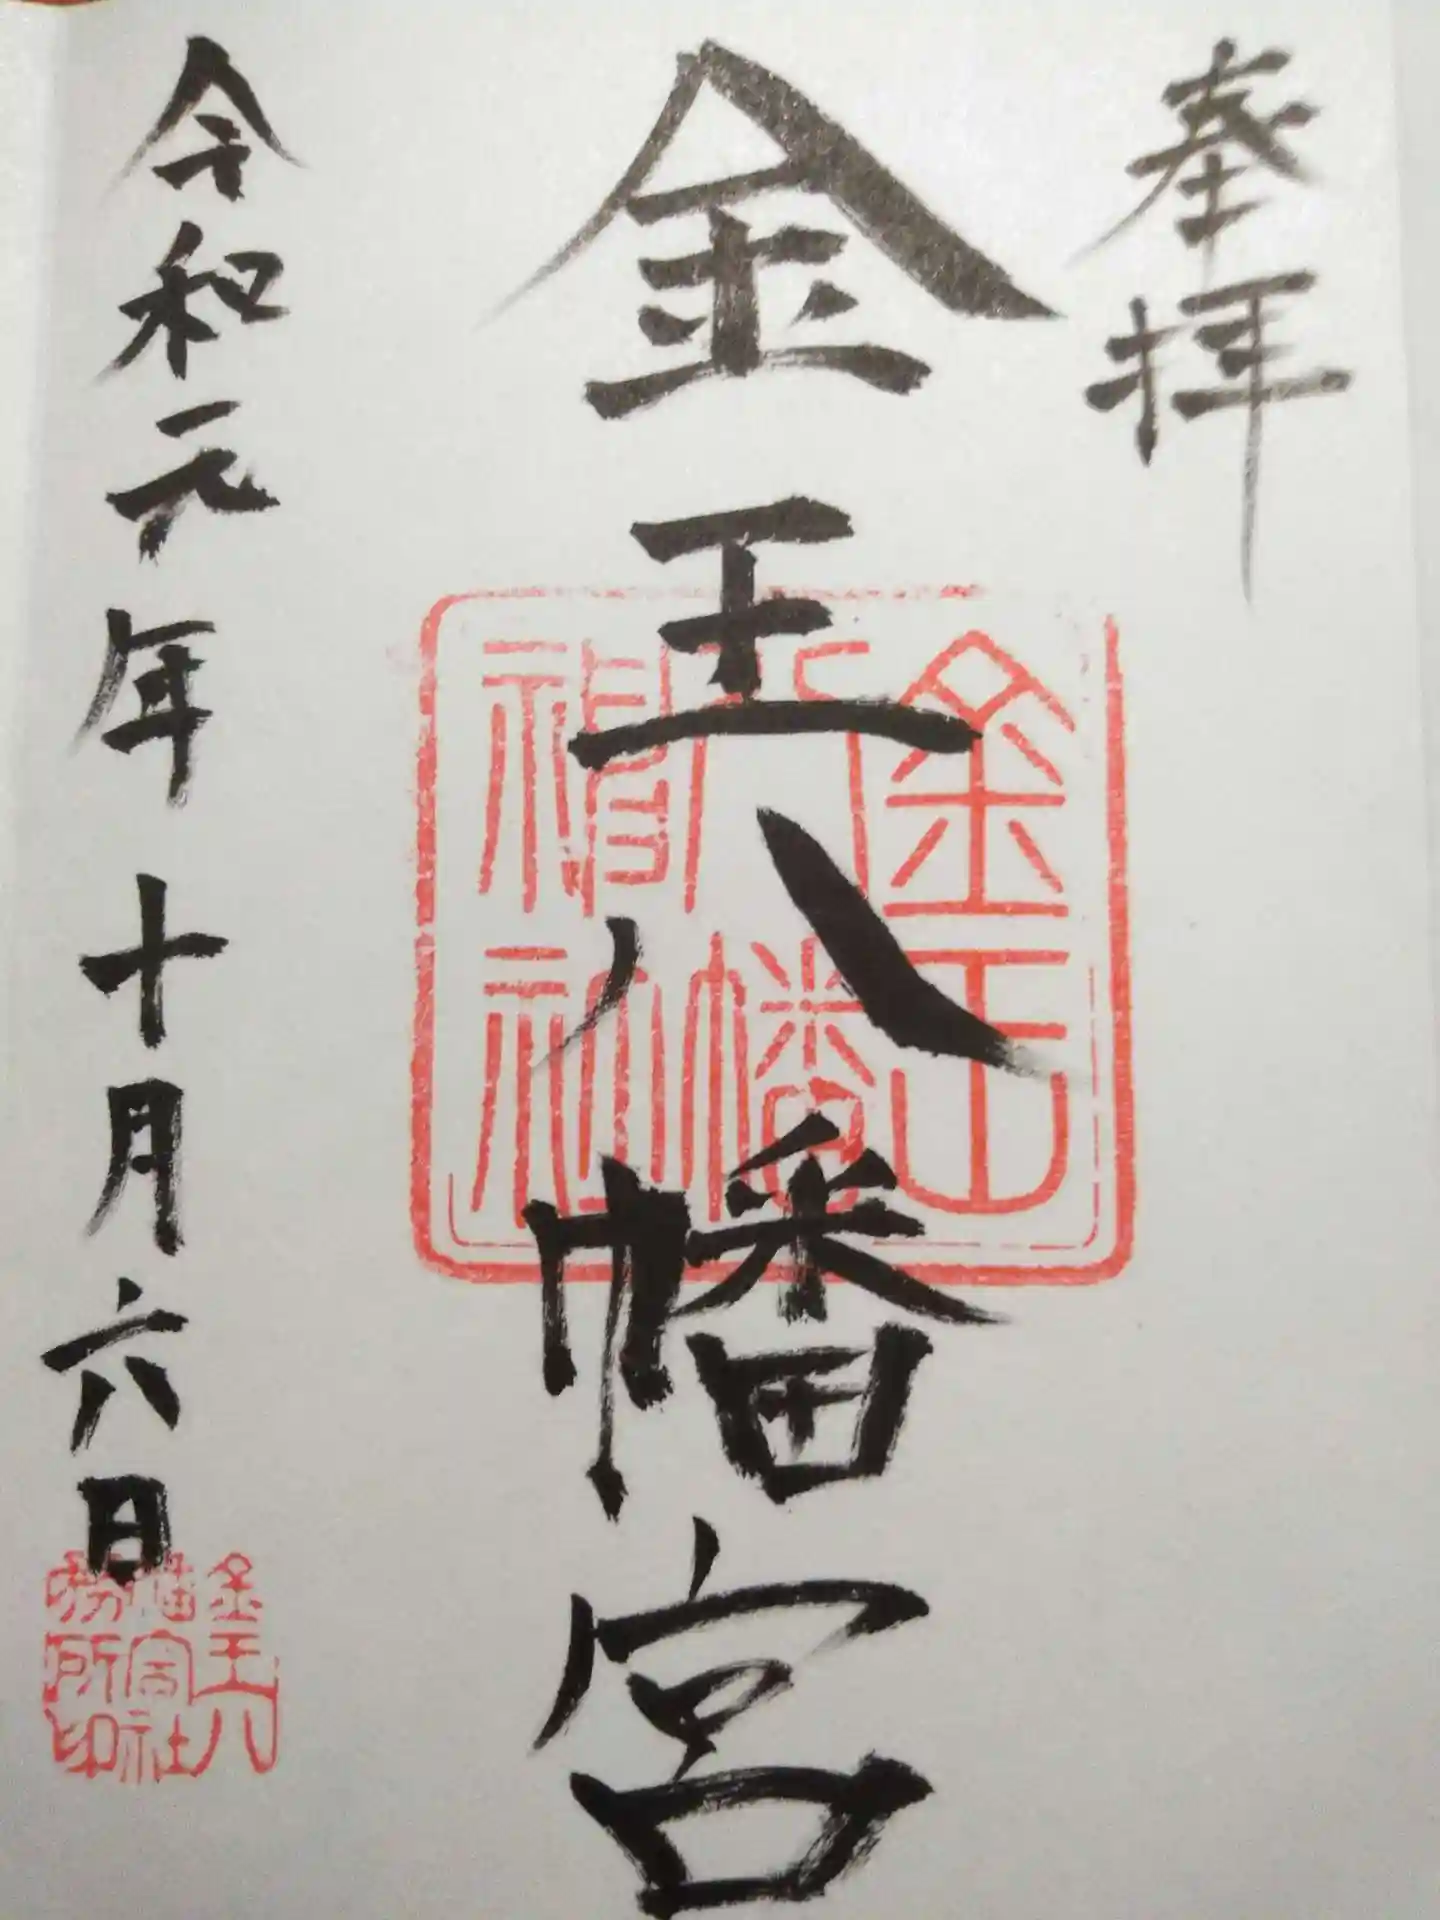 奉拝
金王八幡宮
令和元年十月六日
金王
八幡
神社
金王八
幡宮社
務所印